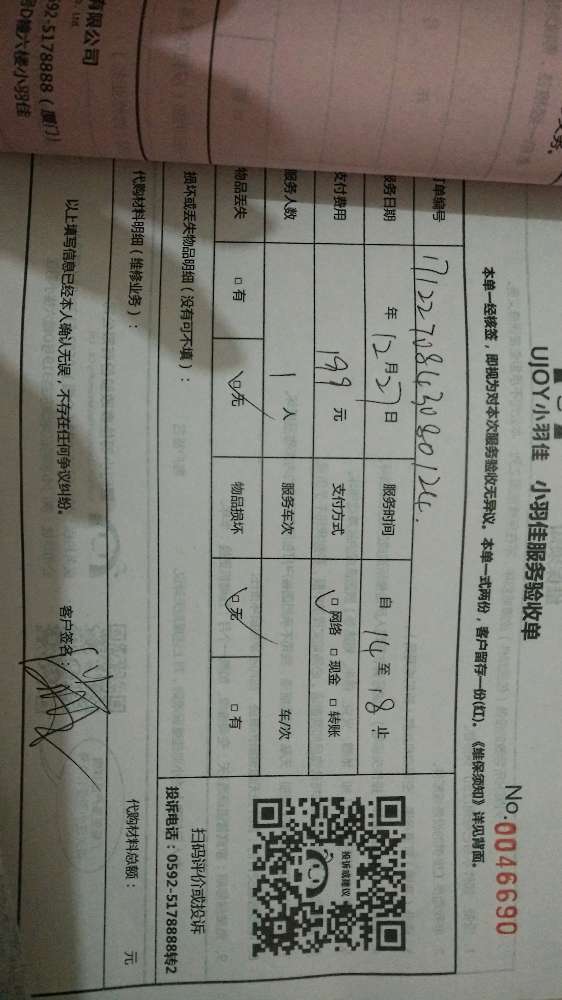 UJOY小羽佳 小羽佳服务验收单
No.0046690
本单一经核签，即视为对本次服务验收无异议。本单一式两份，客户留存一份(红)。《维保须知》详见背面。
订单编号 17122708430800124
服务日期 年 12月27日 服务时间 自 14 至 18 止
支付费用 199 元 支付方式 □网络 □现金 □转账
服务人数 1 人 服务车次 车/次
物品丢失 □有 □无 物品损坏 □无 □有
损坏或丢失物品明细（没有可不填）：
投诉或建议
扫码评价或投诉
投诉电话：0592-5178888转2
代购材料明细（维修业务）：
代购材料总额： 元
以上填写信息已经本人确认无误，不存在任何争议纠纷。
客户签名：
有限公司
592-5178888（厦门）
号D幢六楼小羽佳